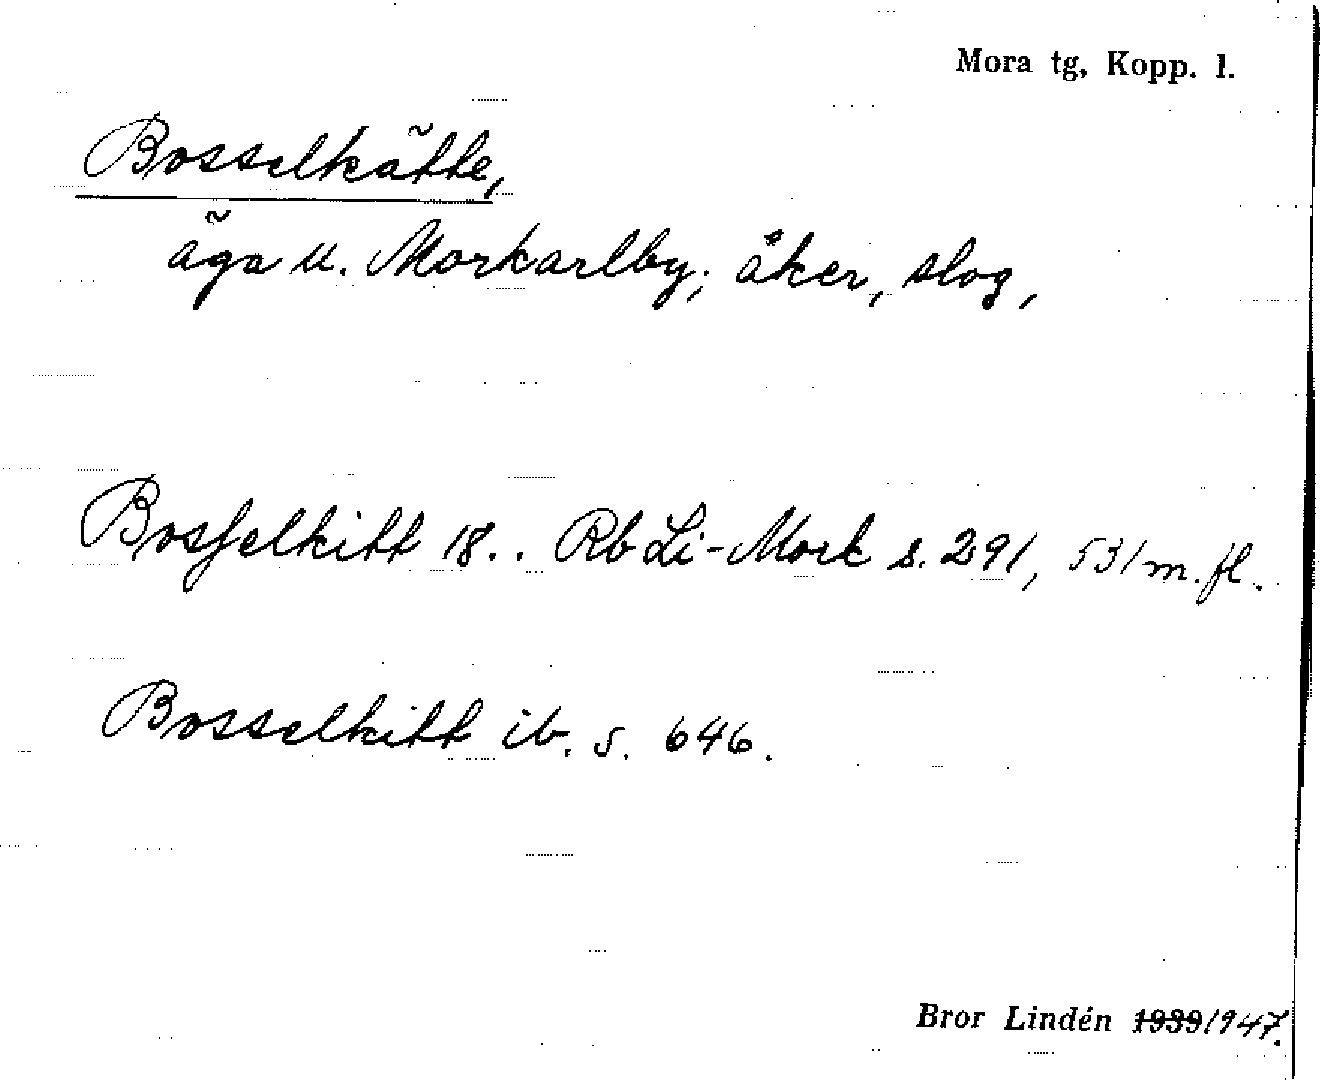 Mora tg, Kopp. l.
Bosselkätte,
äga u. Morkarlby; åker, slog,
Bosselkitt 18.. Rb Li-Mork s. 291, 531 m. fl.
Bosselkitt ib. s. 646.
Bror Lindén 1939 1947.